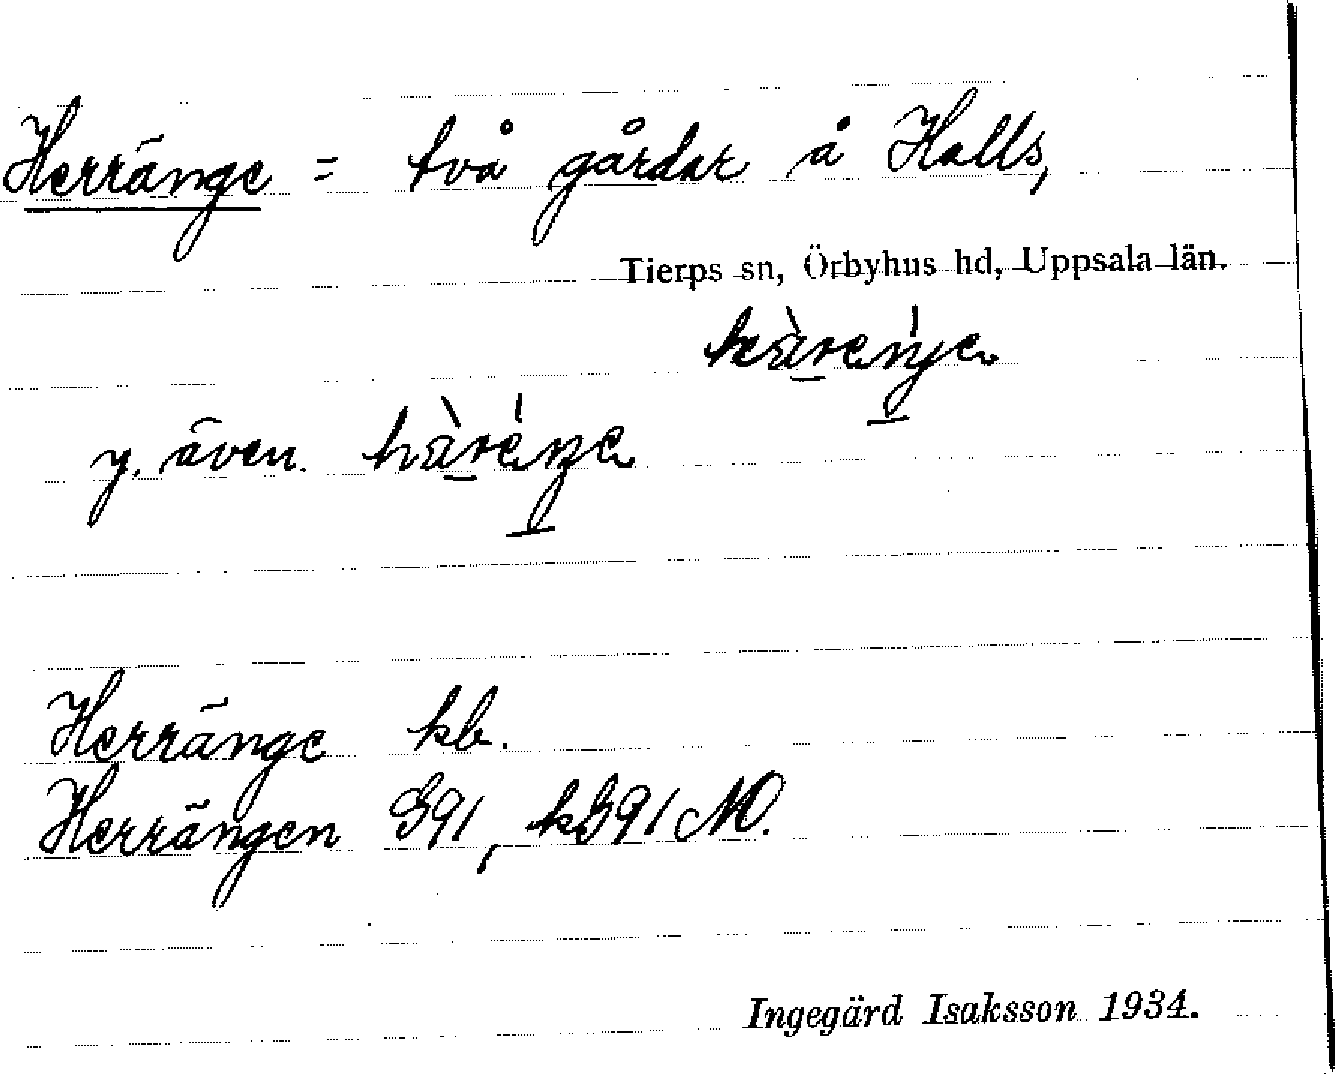 Herränge = två gårdar å Halls,
Tierps sn, Örbyhus hd, Uppsala län.
y. även
Herränge kb.
Herrängen G91, kG91 NO.
Ingegärd Isaksson 1934.